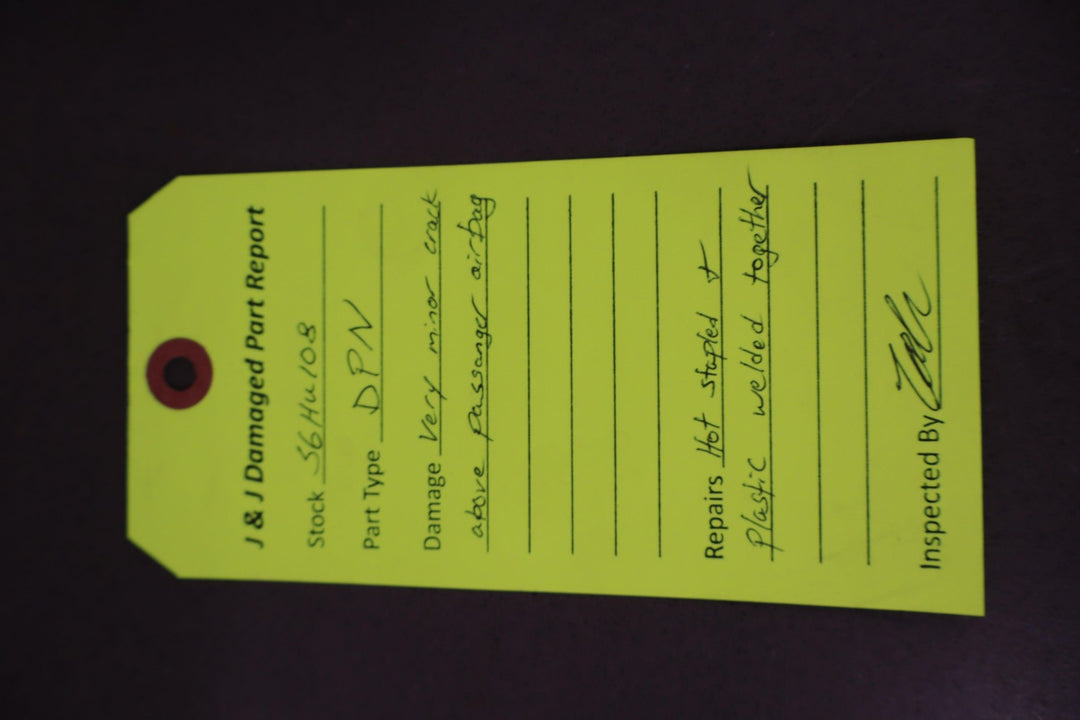 J & J Damaged Part Report
Stock S6Hu108
Part Type DPN
Damage Very minor crack
above passanger airbag
Repairs Hot stapled &
plastic welded together
Inspected By